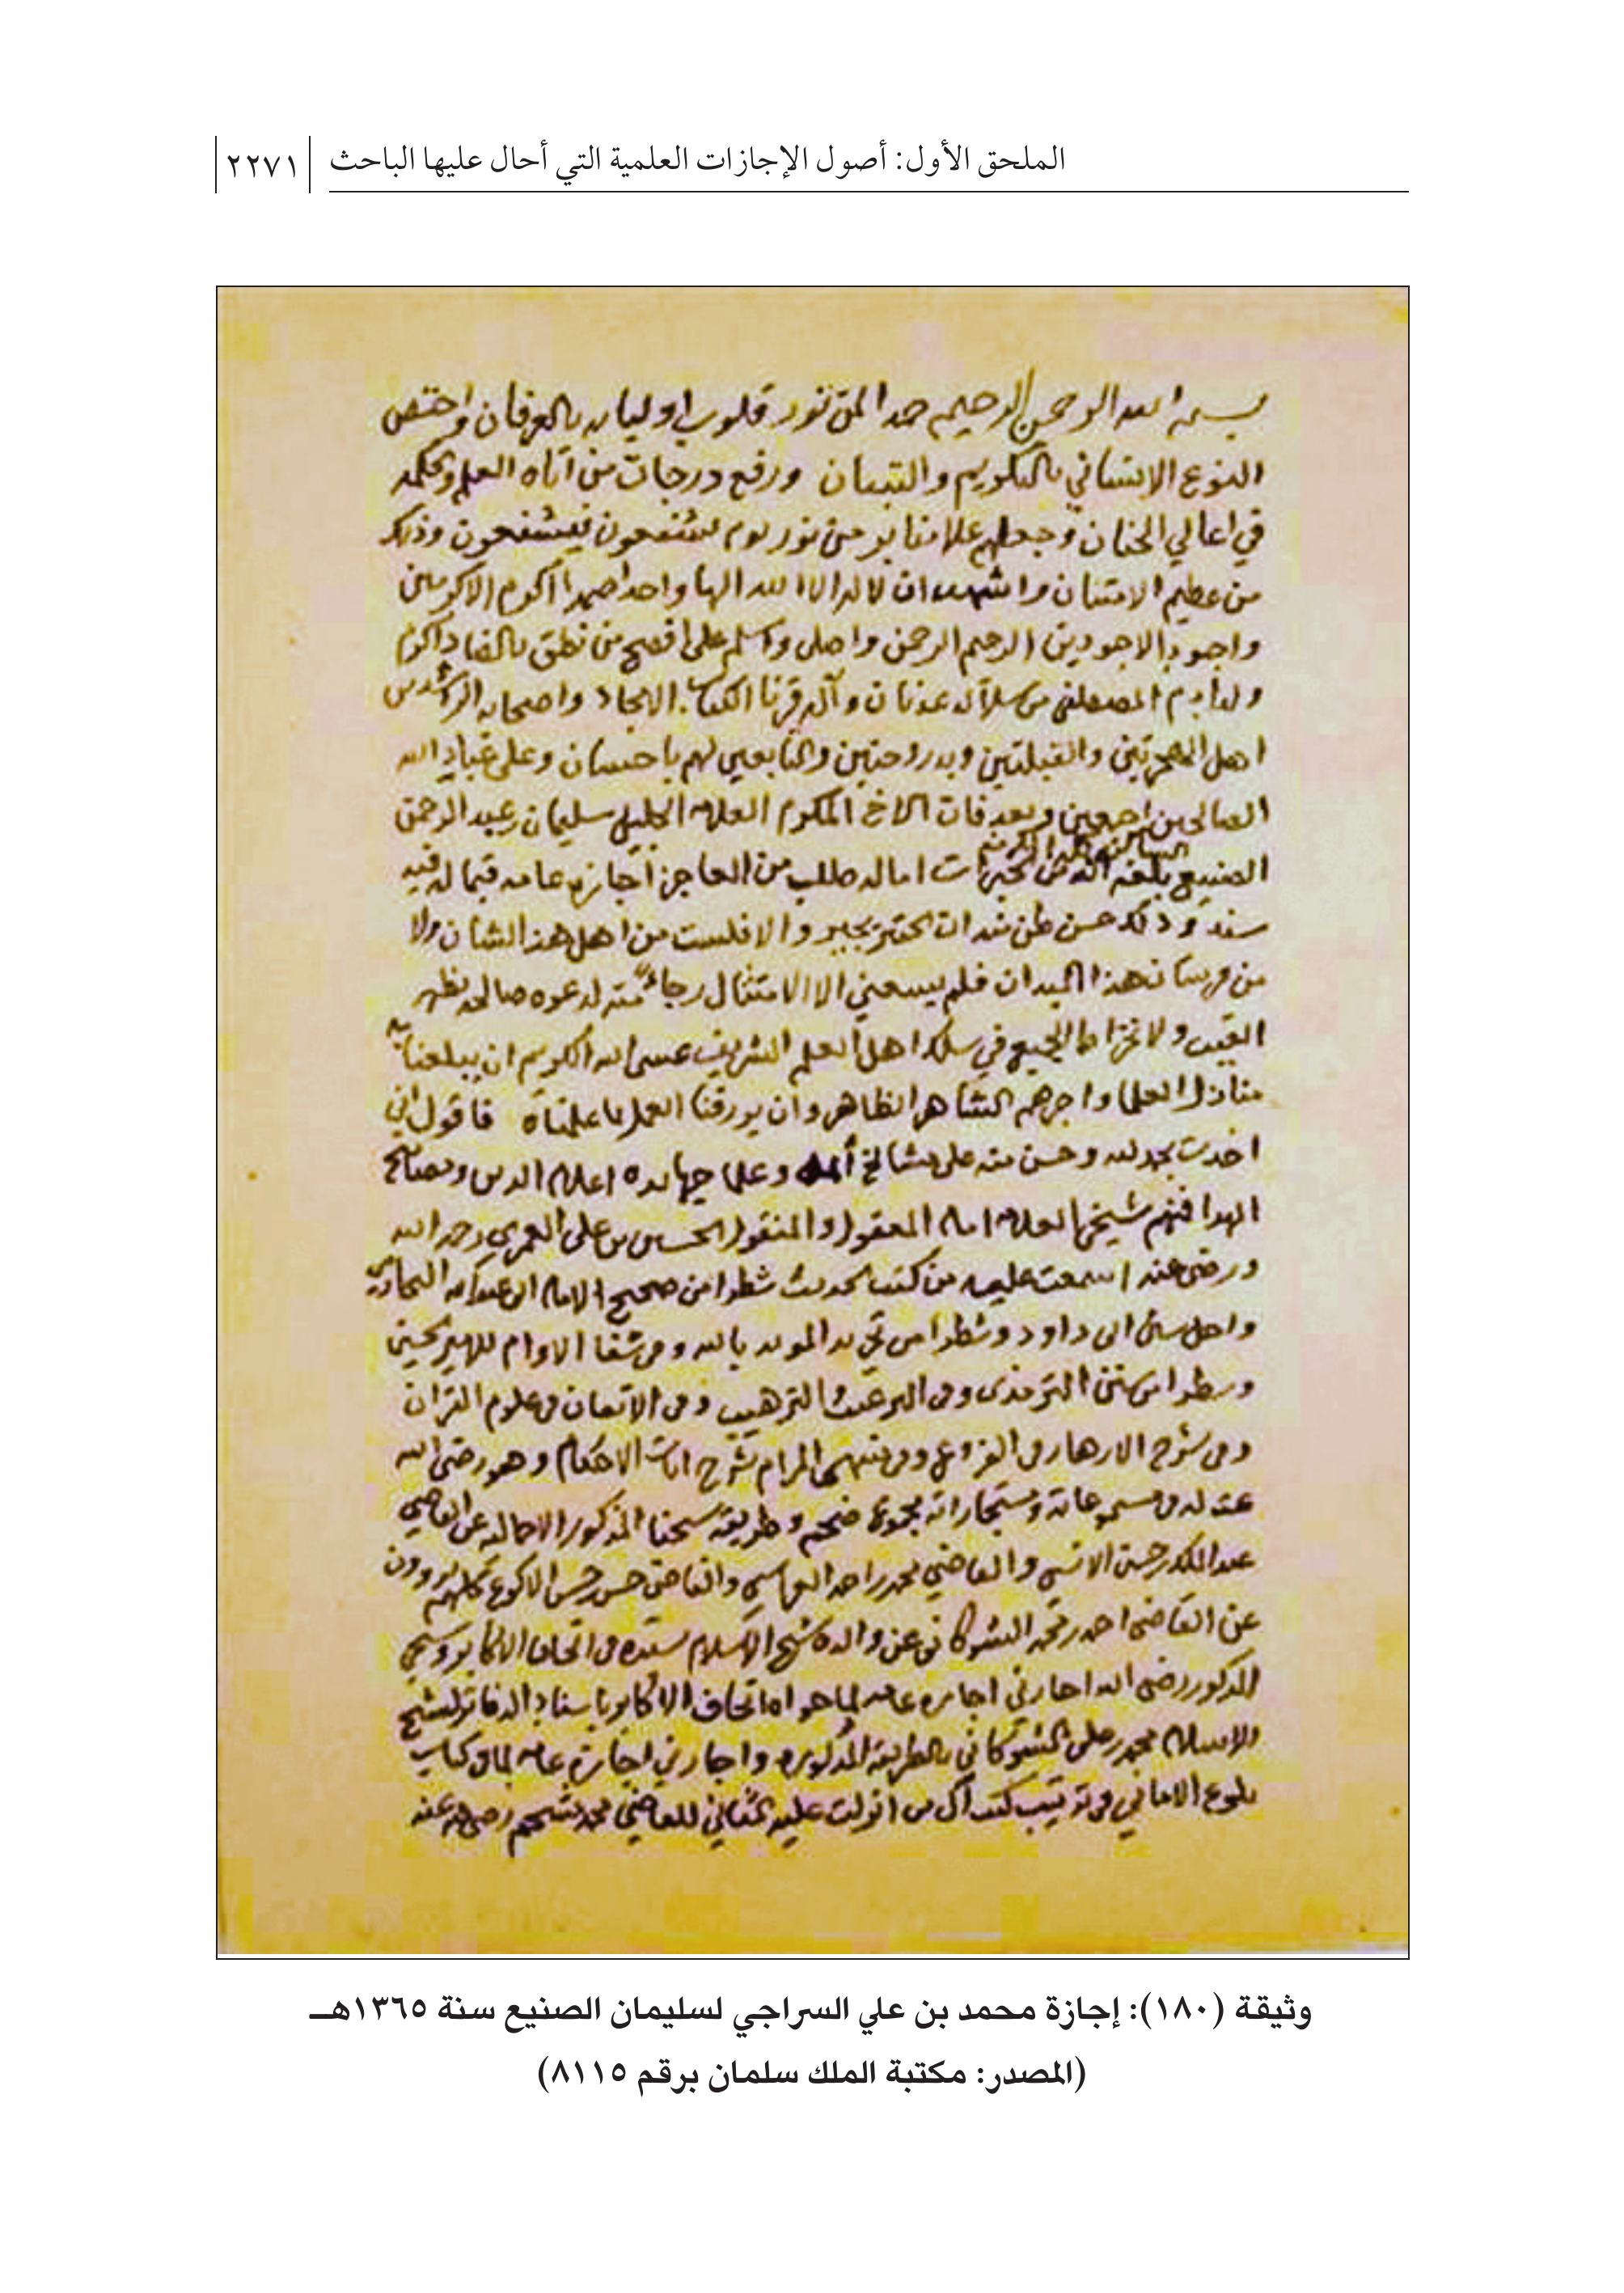 الملحق الأول: أصول الإجازات العلمية التي أحال عليها الباحث
٢٢٧١
بسم الله الرحمن الرحيم حمدا لمن نور قلوب اوليائه بالعرفان واختص
النوع الانساني بالتكريم والتبيان ورفع درجات من آتاه العلم وحكمه
في اعالي الجنان وجعلهم يوم
من عظيم الامتنان واشهد ان لا اله الا الله الها واحدا صمدا اكرم الاكرمين
واجود الاجودين الرحيم الرحمن واصلي واسلم على افصح من نطق بالضاد واكرم
ولد آدم المصطفى من سلالة عدنان وآله قرنا الكتاب الامجاد واصحابه الراشدين
اهل الهجرتين والقبلتين والتابعين لهم باحسان وعلى عباد الله
الصالحين اجمعين وبعد فان الاخ المكرم العلامه الجليل سليمان بن عبد الرحمن
الصنيع بلغه الله من الخيرات اماله طلب من العاجز اجازه عامه فيما له فيه
سند وذلك حسن ظن منه ان والا فلست من اهل هذا الشان ولا
من فرسان هذا الميدان فلم يسعني الا الامتثال رجاء منه لدعوه صالحه بظهر
الغيب ولانخراط الجميع في سلك اهل العلم الشريف عسى الله الكريم ان يبلغنا
منازل العلما واجرهم الظاهر وان يرزقنا العمل بما علمناه فاقول اني
اخذت بحمد الله وحسن منه على مشائخ وعلما جهابذه اعلام الدين ومصابيح
الهدا فمنهم شيخي العلامه امام المعقول والمنقول الحسين بن علي العمري رحمه الله
ورضي عنه اسمعت عليه من كتب الحديث شطرا من صحيح الامام ابي عبد الله البخاري
سنن ابي داود وشطرا من تجريد المويد بالله وفي شفا الاوام للامير الحسين
وشطرا من سنن الترمذي وفي الترغيب والترهيب وفي الاتقان في علوم القران
وفي شرح الازهار في الفروع وفي منتهى المرام شرح ايات الاحكام وهو رضي الله
عنه له في مسموعاته ومستجازاته مجموع ضخم وطريقة شيخنا المذكور الاجازه عن القاضي
عبد الملك بن حسين الانسي والقاضي محمد بن احمد العراسي والقاضي حسين بن حسن الاكوع كلهم يروون
عن القاضي احمد بن محمد الشوكاني عن والده شيخ الاسلام بسنده في اتحاف الاكابر وشيخي
المذكور رضي الله اجازني اجازه عامه لما حواه اتحاف الاكابر باسناد الدفاتر لشيخ
الاسلام محمد بن علي الشوكاني بالطريقه المذكوره واجازني اجازة عامه لما في كتاب
بلوغ الاماني في ترتيب كتب آل من انزلت عليه المثاني للقاضي محمد مشحم رضي الله عنه
وثيقة (١٨٠): إجازة محمد بن علي السراجي لسليمان الصنيع سنة ١٣٦٥هـ
(المصدر: مكتبة الملك سلمان برقم ٨١١٥)